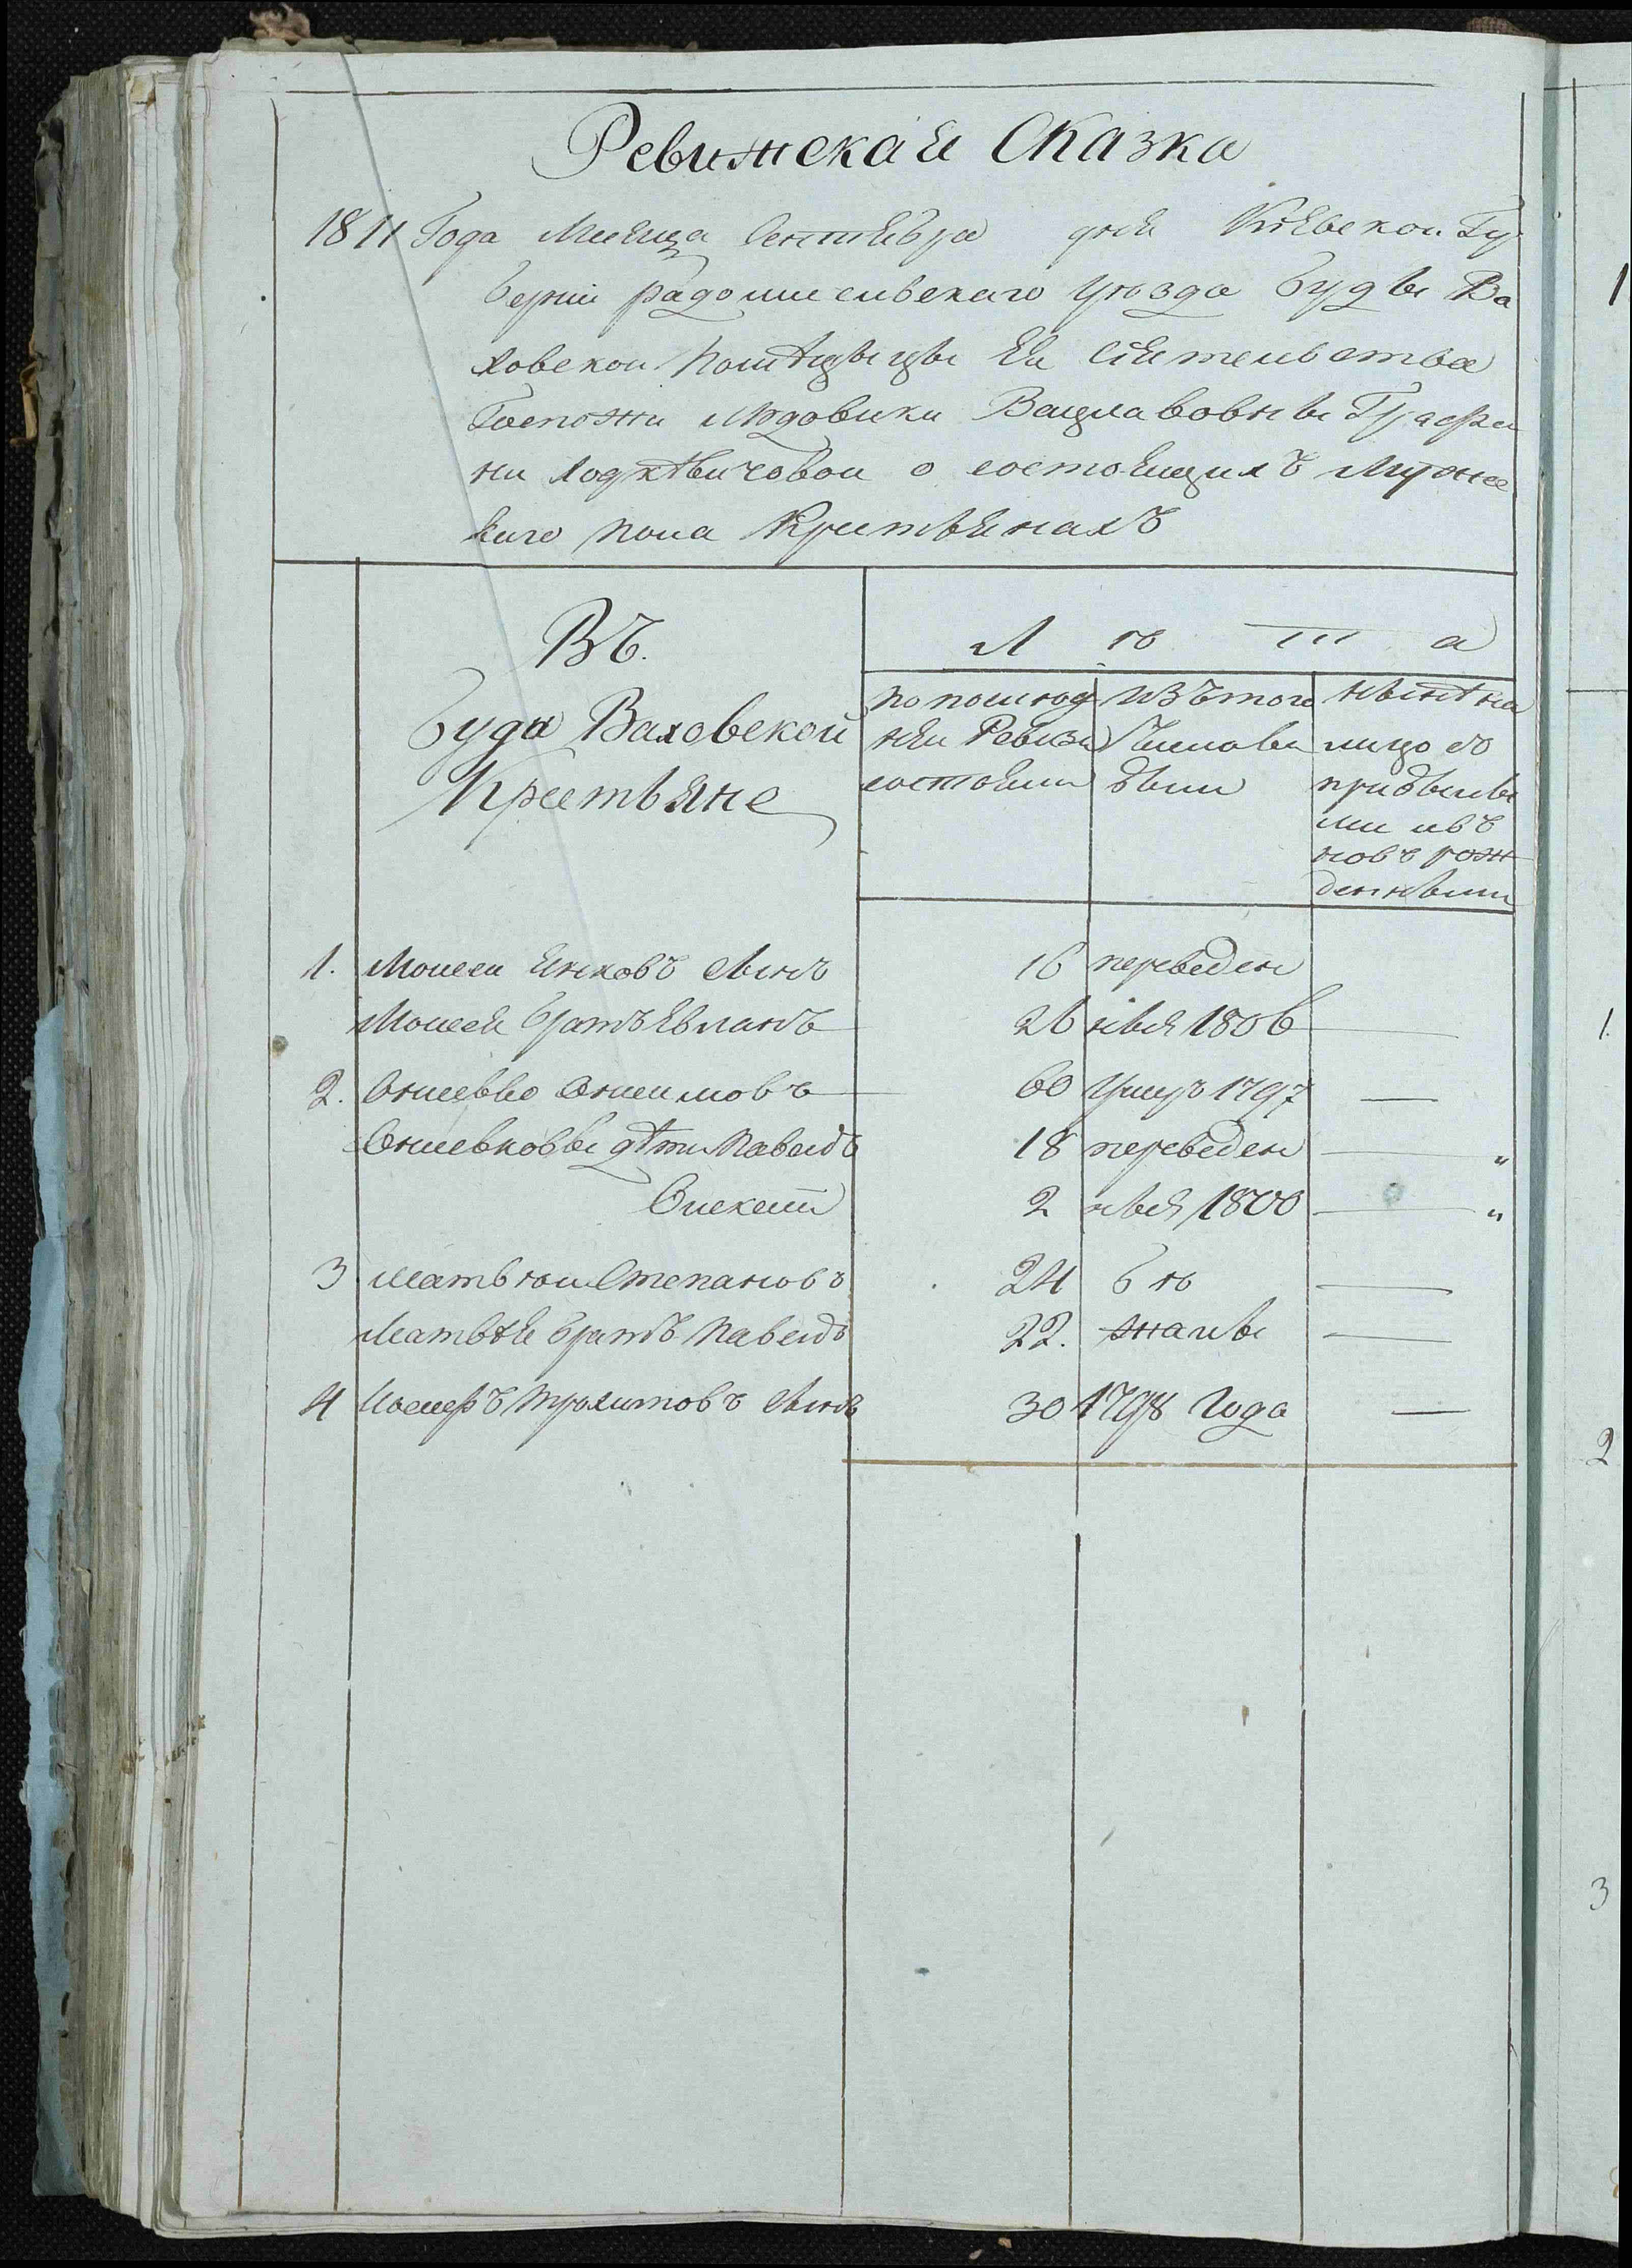 Ревижская Сказка
1811 Года Месяца Сентября дня Кіевской Гу
берніи Радомисельскаго Уезда Буды Ва
ховской помѣщыцы Ея Сіятельства
Госпожи Людовики Вацлавовны Графи
ни Ходкѣвичовой о состоящихъ Мужес
каго пола Крестьянахъ
ВЪ.
Буда Ваховской
Крестьяне
Л ѣ т а
по послед
ней Ревизи
состояли
изъ того
Числа вы
были
нынѣ на
лицо со
прибылы
ми изъ
новъ рож
денными
1. Моисей Янковъ сынъ 16 переведен
Моисея братъ 26 1806 —
2. 60 Умер 1797 —
дѣти Павелъ 18 переведен — "
Олексей 2 1800 — "
3 Матвѣй Степановъ 24 бѣ —
Матвѣя братъ Павелъ 22. жалы —
4 Іосифъ Трохимовъ сынъ 30 1798 Года —
1
1.
2
3